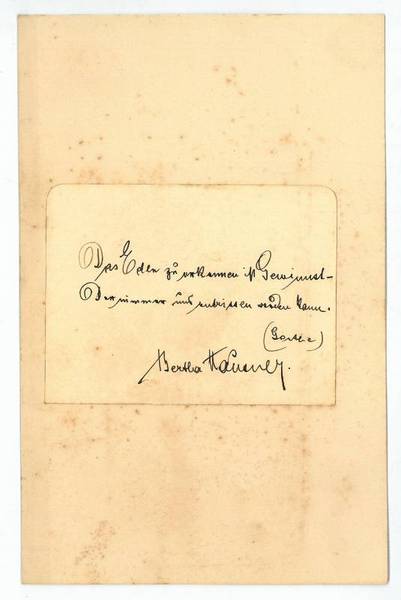 Das Edle zu erkennen ist Gewinnst –
Der nimmer uns entrissen werden kann.
(Goethe)
Bertha Hausner.